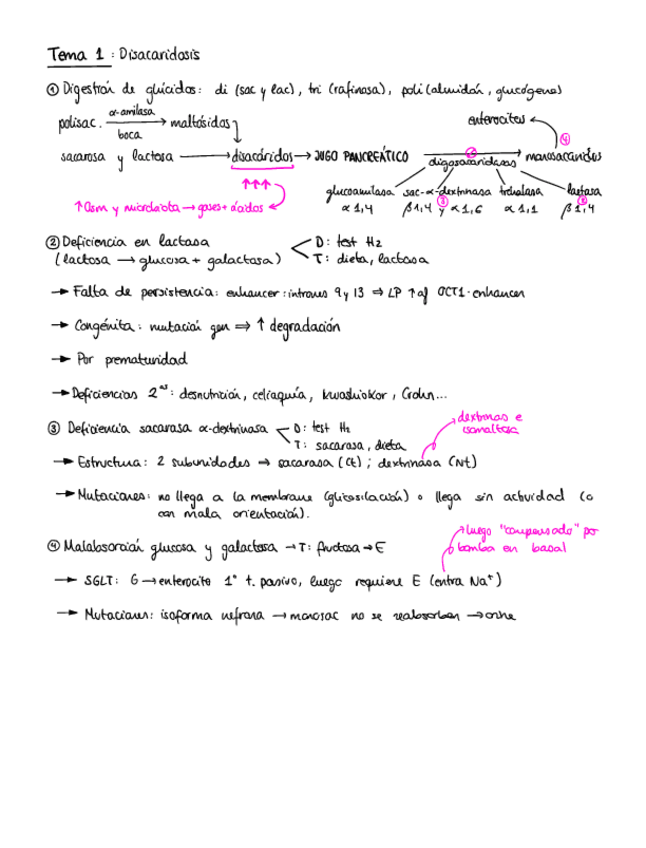 Tema 1 : Disacaridosis
① Digestión de glúcidos: di (sac y lac), tri (rafinosa), poli (almidón, glucógeno)
polisac. α-amilasa boca → maltósidos
enterocitos ← ④
sacarosa y lactosa → disacáridos → JUGO PANCREÁTICO → oligosacaridasas → monosacáridos
↑↑↑
↑ Osm y microbiota → gases + ácidos
glucoamilasa sac-α-dextrinasa trehalasa lactasa
α 1,4 β 1,4 y α 1,6 α 1,1 β 1,4
③ ②
② Deficiencia en lactasa
D: test H2
(lactosa → glucosa + galactosa)
T: dieta, lactosa
→ Falta de persistencia: enhancer: intrones 9 y 13 ⇒ LP ↑ af OCT1 - enhancer
→ Congénita: mutación gen ⇒ ↑ degradación
→ Por prematuridad
→ Deficiencias 2as: desnutrición, celiaquía, kwashiokor, Crohn...
③ Deficiencia sacarasa α-dextrinasa
D: test H2
T: sacarosa, dieta
dextrinas e
isomaltosa
→ Estructura: 2 subunidades → sacarasa (Ct) ; dextrinasa (Nt)
→ Mutaciones: no llega a la membrana (glicosilación) o llega sin actividad (o
con mala orientación).
④ Malabsorción glucosa y galactosa → T: fructosa → E
luego "compensado" por
bomba en basal
→ SGLT: G → enterocito 1º t. pasivo, luego requiere E (entra Na+)
→ Mutaciones: isoforma nefrona → monosac no se reabsorben → orina